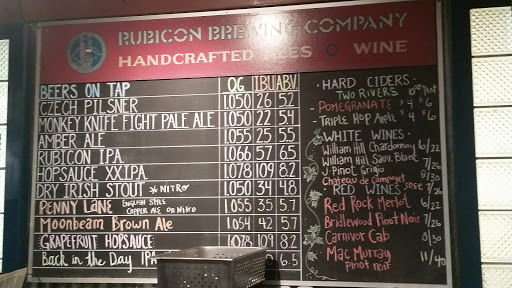 RUBICON BREWING COMPANY
HANDCRAFTED ALES & WINE
BEERS ON TAP OG IBU ABV
CZECH PILSNER 1.050 26 5.2
MONKEY KNIFE FIGHT PALE ALE 1.050 22 5.4
AMBER ALE 1.055 25 5.5
RUBICON IPA 1.066 57 6.5
HOPSAUCE XXIPA 1.078 109 8.2
DRY IRISH STOUT *NITRO 1.050 34 4.8
PENNY LANE ENGLISH STYLE COPPER ALE on Nitro 1.055 35 5.7
Moonbeam Brown Ale 1.054 42 5.7
GRAPEFRUIT HOPSAUCE 1.078 109 8.2
Back in the Day IPA 6.5
· HARD CIDERS ·
TWO RIVERS 10oz Pint
- POMEGRANATE $4 $6
- TRIPLE HOP Apple $4 $6
· WHITE WINES ·
William Hill Chardonnay 6/22
William Hill Sauv. Blanc 7/26
J Pinot Grigio 8/30
Chateau de Campuget ROSE 7/26
· RED WINES ·
Red Rock Merlot 6/22
Bridlewood Pinot Noir 7/26
Carnivor Cab 8/30
Mac Murray Pinot noir 11/40